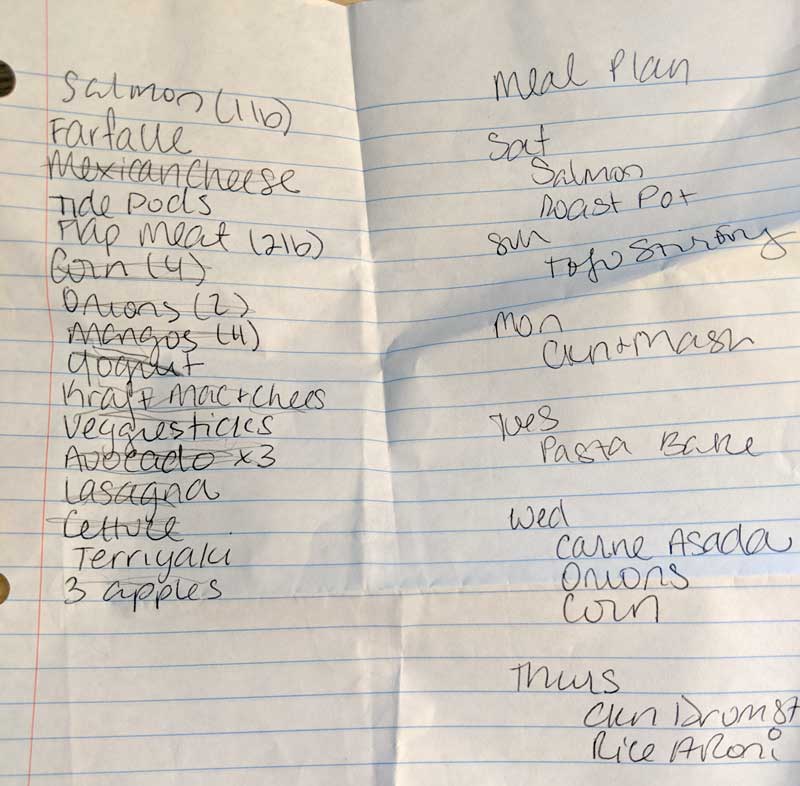 Salmon (1lb)
Farfalle
Mexican Cheese
Tide Pods
Flap meat (2lb)
Corn (4)
Onions (2)
Mangos (4)
Yogurt
Kraft Mac + Chees
Veggiesticks
Avocado x3
Lasagna
Lettuce
Terriyaki
3 apples
Meal Plan
Sat
Salmon
Roast Pot
Sun
Tofu Stirfry
Mon
Ckn + Mash
Tues
Pasta Bake
Wed
Carne Asada
Onions
Corn
Thurs
Ckn Drumst
Rice ARoni